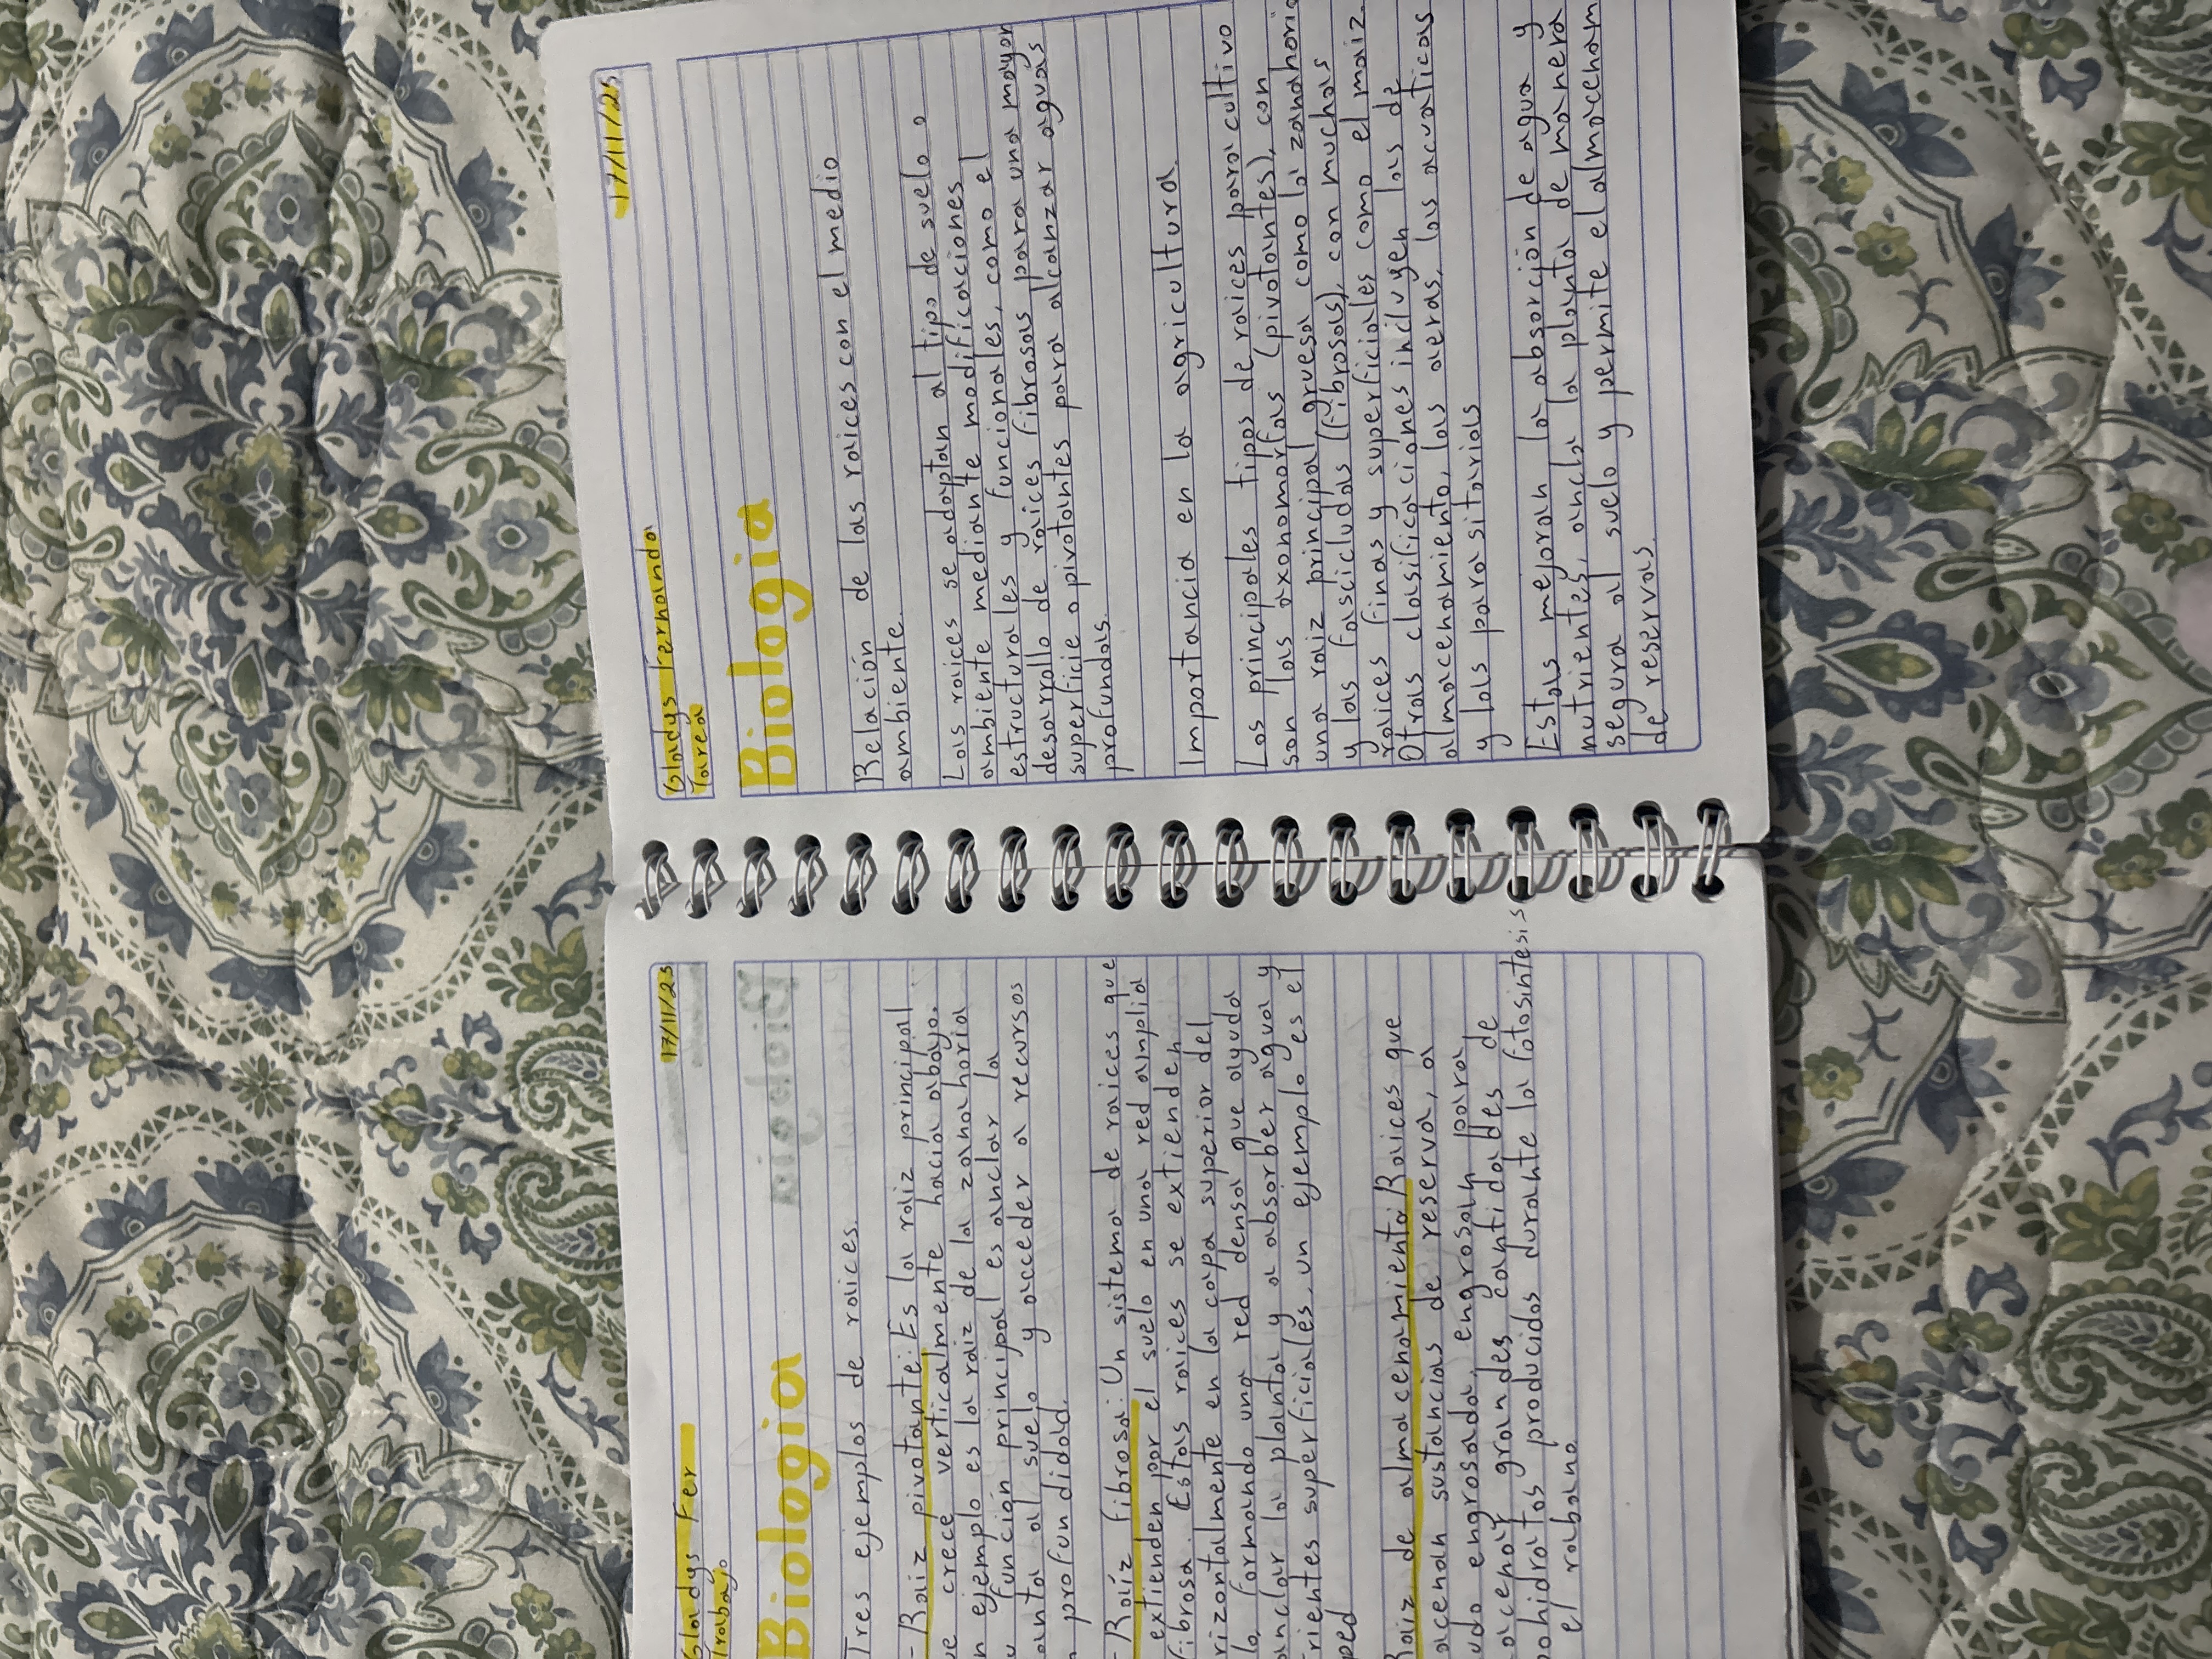 Gladys Fer 17/11/25
Trabajo
Biologia
Tres ejemplos de raices.
- Raiz pivotante: Es la raiz principal
ue crece verticalmente hacia abajo.
n ejemplo es la raiz de la zanahoria
u función principal es anclar la
anta al suelo y acceder a recursos
n profundidad.
- Raíz fibrosa: Un sistema de raices que
extienden por el suelo en una red amplia
fibrosa. Estas raices se extienden
rizontalmente en la capa superior del
lo, formando una red densa que ayuda
anclar la planta y a absorber agua y
rientes superficiales, un ejemplo es el
ped
Raiz de almacenamiento: Raices que
acenan sustancias de reserva, a
udo engrosada, engrosan para
acenar grandes cantidades de
bohidratos producidos durante la fotosintesis
el rabano
Gladys Fernanda 17/11/25
Tarea
Biologia
Relación de las raices con el medio
ambiente.
Las raices se adaptan al tipo de suelo o
ambiente mediante modificaciones
estructurales y funcionales, como el
desarrollo de raices fibrosas para una mayor
superficie o pivotantes para alcanzar aguas
profundas.
Importancia en la agricultura.
Los principales tipos de raices para cultivo
son las axonomorfas (pivotantes), con
una raiz principal gruesa como la zanahoria
y las fascicludas (fibrosas), con muchas
raices finas y superficiales como el maiz.
Otras clasificaciones incluyen las de
almacenamiento, las aeras, las acuaticas
y las parasitarias
Estas mejoran la absorción de agua y
nutrientes, ancla la planta de manera
segura al suelo y permite el almacenam
de reservas.